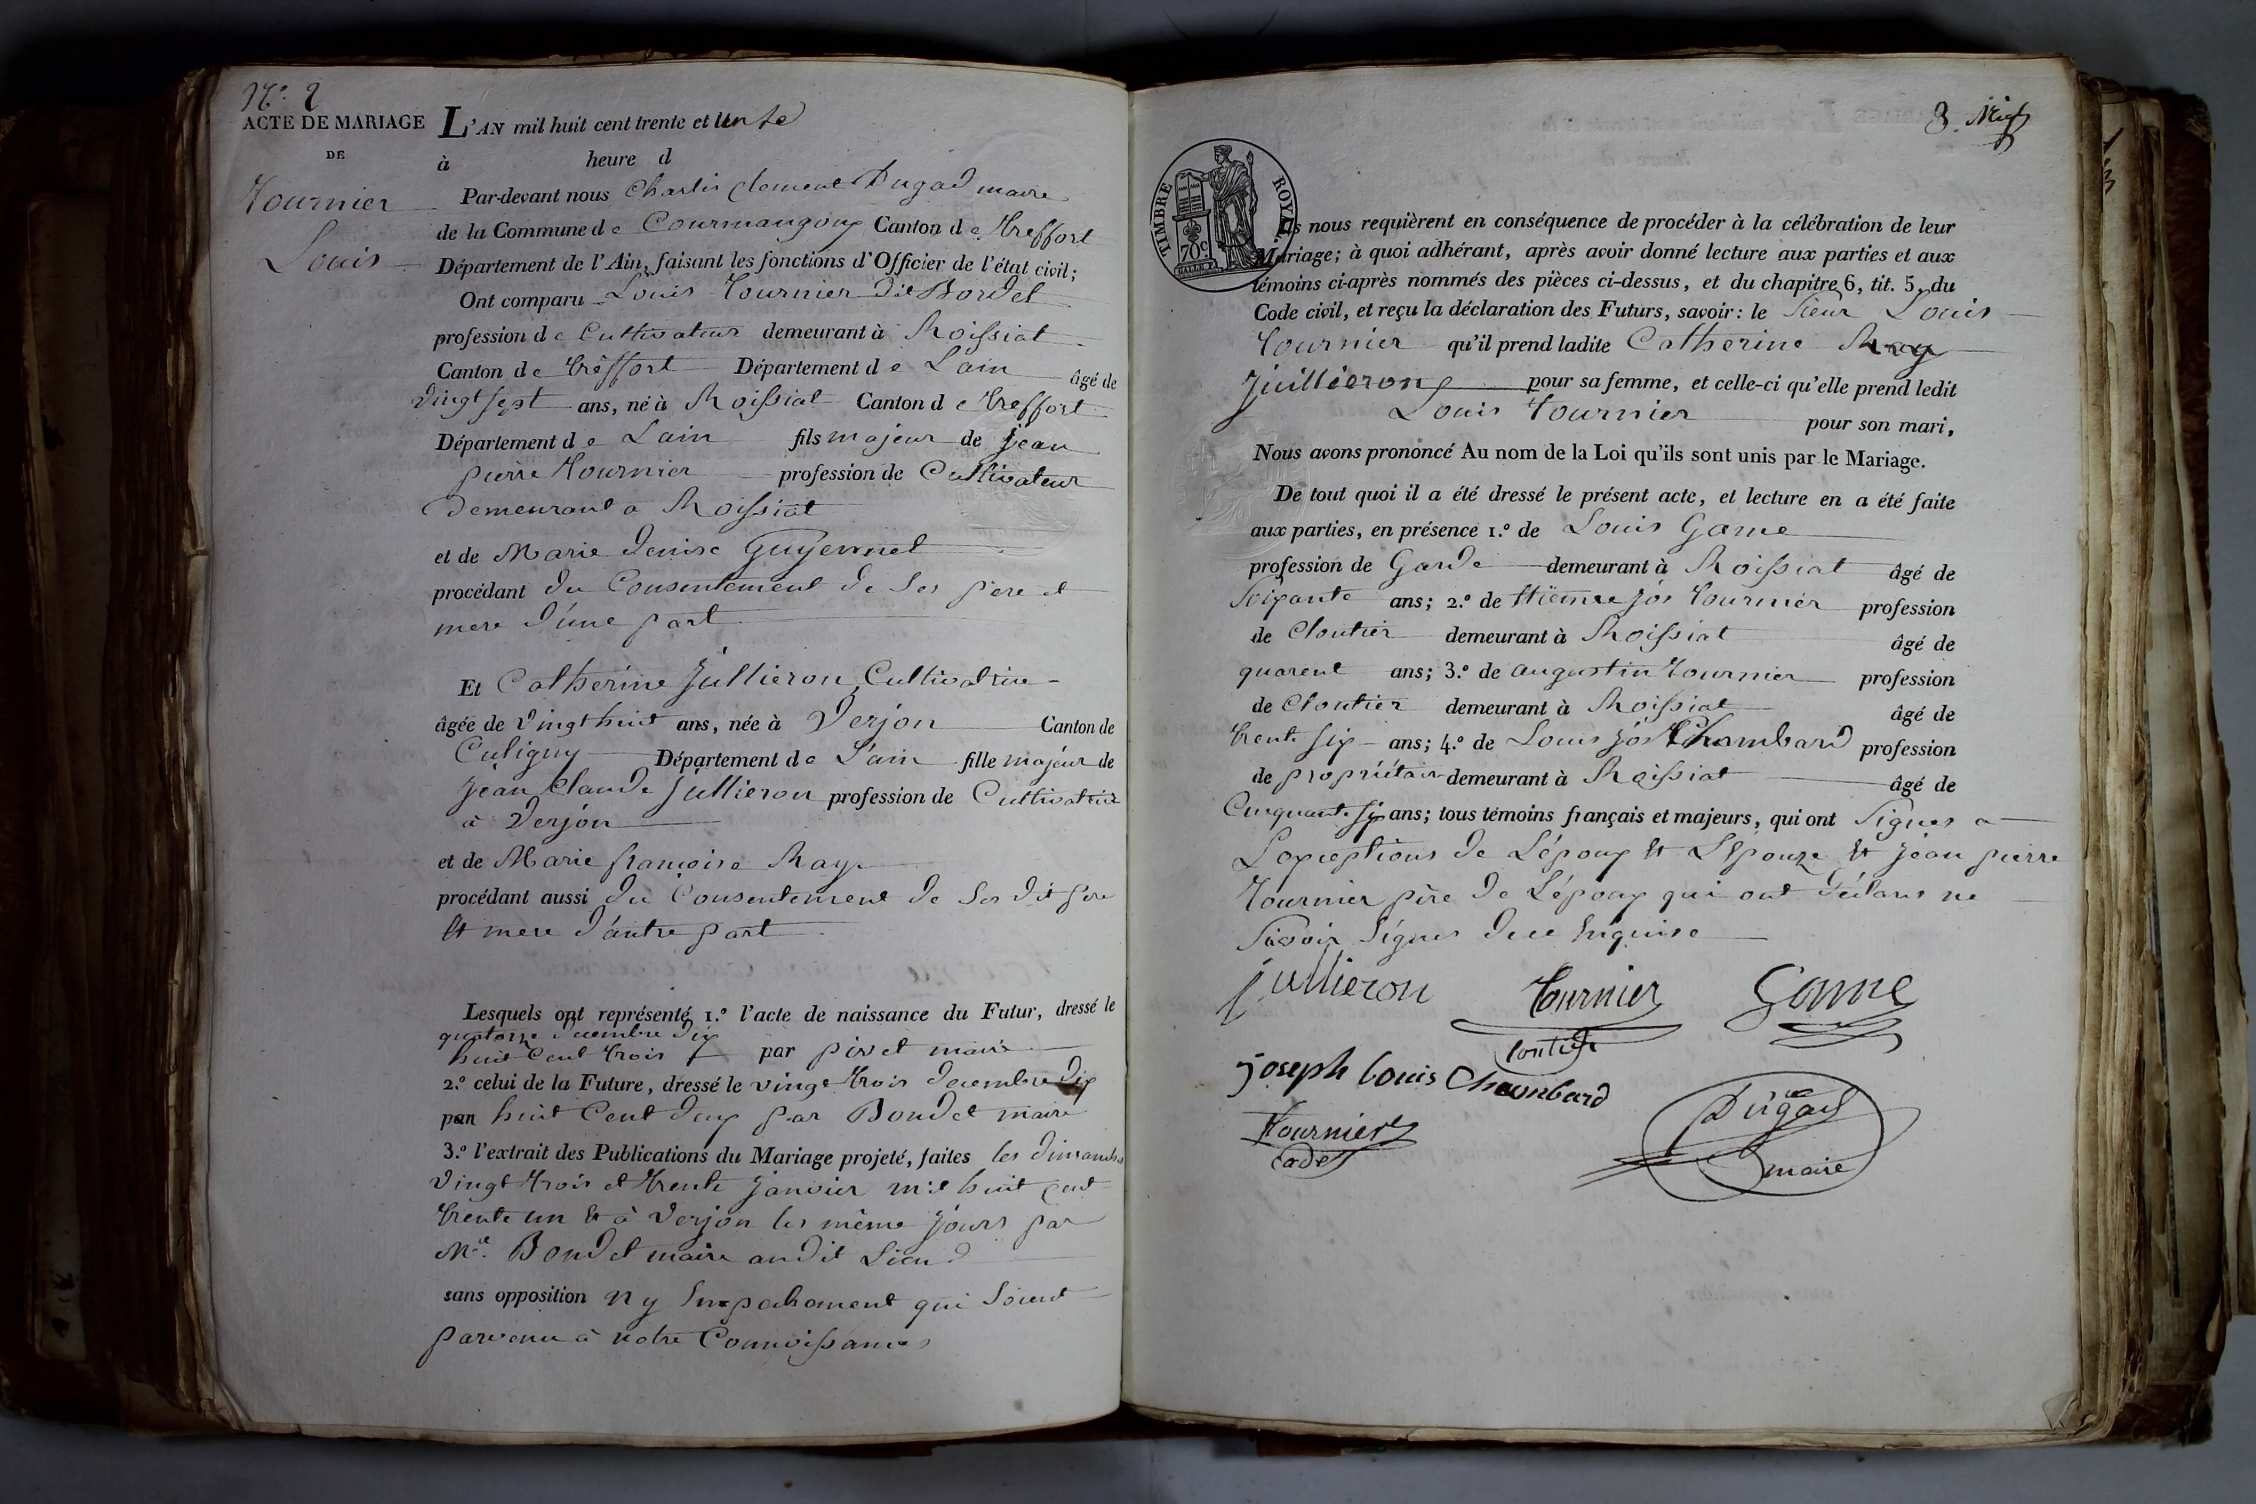 N.º 2
ACTE DE MARIAGE
DE
Tournier
Louis
L'AN mil huit cent trente et un
à heure d
Par-devant nous Charles Clement Dugad maire
de la Commune de Courmangoux Canton de Treffort
Département de l'Ain, faisant les fonctions d'Officier de l'état civil;
Ont comparu Louis Tournier dit Bordet
profession de Cultivateur demeurant à Roissiat
Canton de Treffort Département de L'ain âgé de
vingt sept ans, né à Roissiat Canton de Treffort
Département de Lain fils majeur de jean
pierre Tournier profession de Cultivateur
demeurant a Roissiat
et de Marie denise Guyennet
procédant du Consentement de Ses pere et
mere d'une part
Et Catherine Jullieron Cultivatrice
âgée de vingt huit ans, née à Verjon Canton de
Culigny Département de L'ain fille majeur de
jean Claude Jullieron profession de Cultivatrice
à Verjon
et de Marie françoise Ray
procédant aussi du Consentement de Ses dit pere
Et mere d'autre part
Lesquels ont représenté 1.º l'acte de naissance du Futur, dressé le
quatorze decembre dix
huit Cent trois par pivet maire
2.º celui de la Future, dressé le vingt trois decembre dix
par huit Cent deux par Bondet maire
3.º l'extrait des Publications du Mariage projeté, faites les dimanches
vingt trois et trente janvier mil huit cent
trente un Et à Verjon les même jours par
Mr. Bondet maire audit Lieu
sans opposition ny Empechement qui Soient
parvenu à notre Connoissances
TIMBRE ROYAL
70.c
3.
Ils nous requièrent en conséquence de procéder à la célébration de leur
Mariage; à quoi adhérant, après avoir donné lecture aux parties et aux
témoins ci-après nommés des pièces ci-dessus, et du chapitre 6, tit. 5, du
Code civil, et reçu la déclaration des Futurs, savoir: le Sieur Louis
Tournier qu'il prend ladite Catherine Ray
Juillieron pour sa femme, et celle-ci qu'elle prend ledit
Louis Tournier pour son mari,
Nous avons prononcé Au nom de la Loi qu'ils sont unis par le Mariage.
De tout quoi il a été dressé le présent acte, et lecture en a été faite
aux parties, en présence 1.º de Louis Game
profession de Garde demeurant à Roissiat âgé de
Soixante ans; 2.º de Etienne jos Tournier profession
de Cloutier demeurant à Roissiat âgé de
quarent ans; 3.º de augustin Tournier profession
de Cloutier demeurant à Roissiat âgé de
trente six ans; 4.º de Louis jos Chambard profession
de propriétair demeurant à Roissiat âgé de
Cinquante six ans; tous témoins français et majeurs, qui ont Signer a
L'exceptions de L'époux Et L'Epouze Et jean pierre
Tournier père de L'époux qui ont déclare ne
Savoir Signer de ce Enquise
jullieron Tournier Game
Joseph Louis Chambard
Tournier
cadet
Dugad
maire